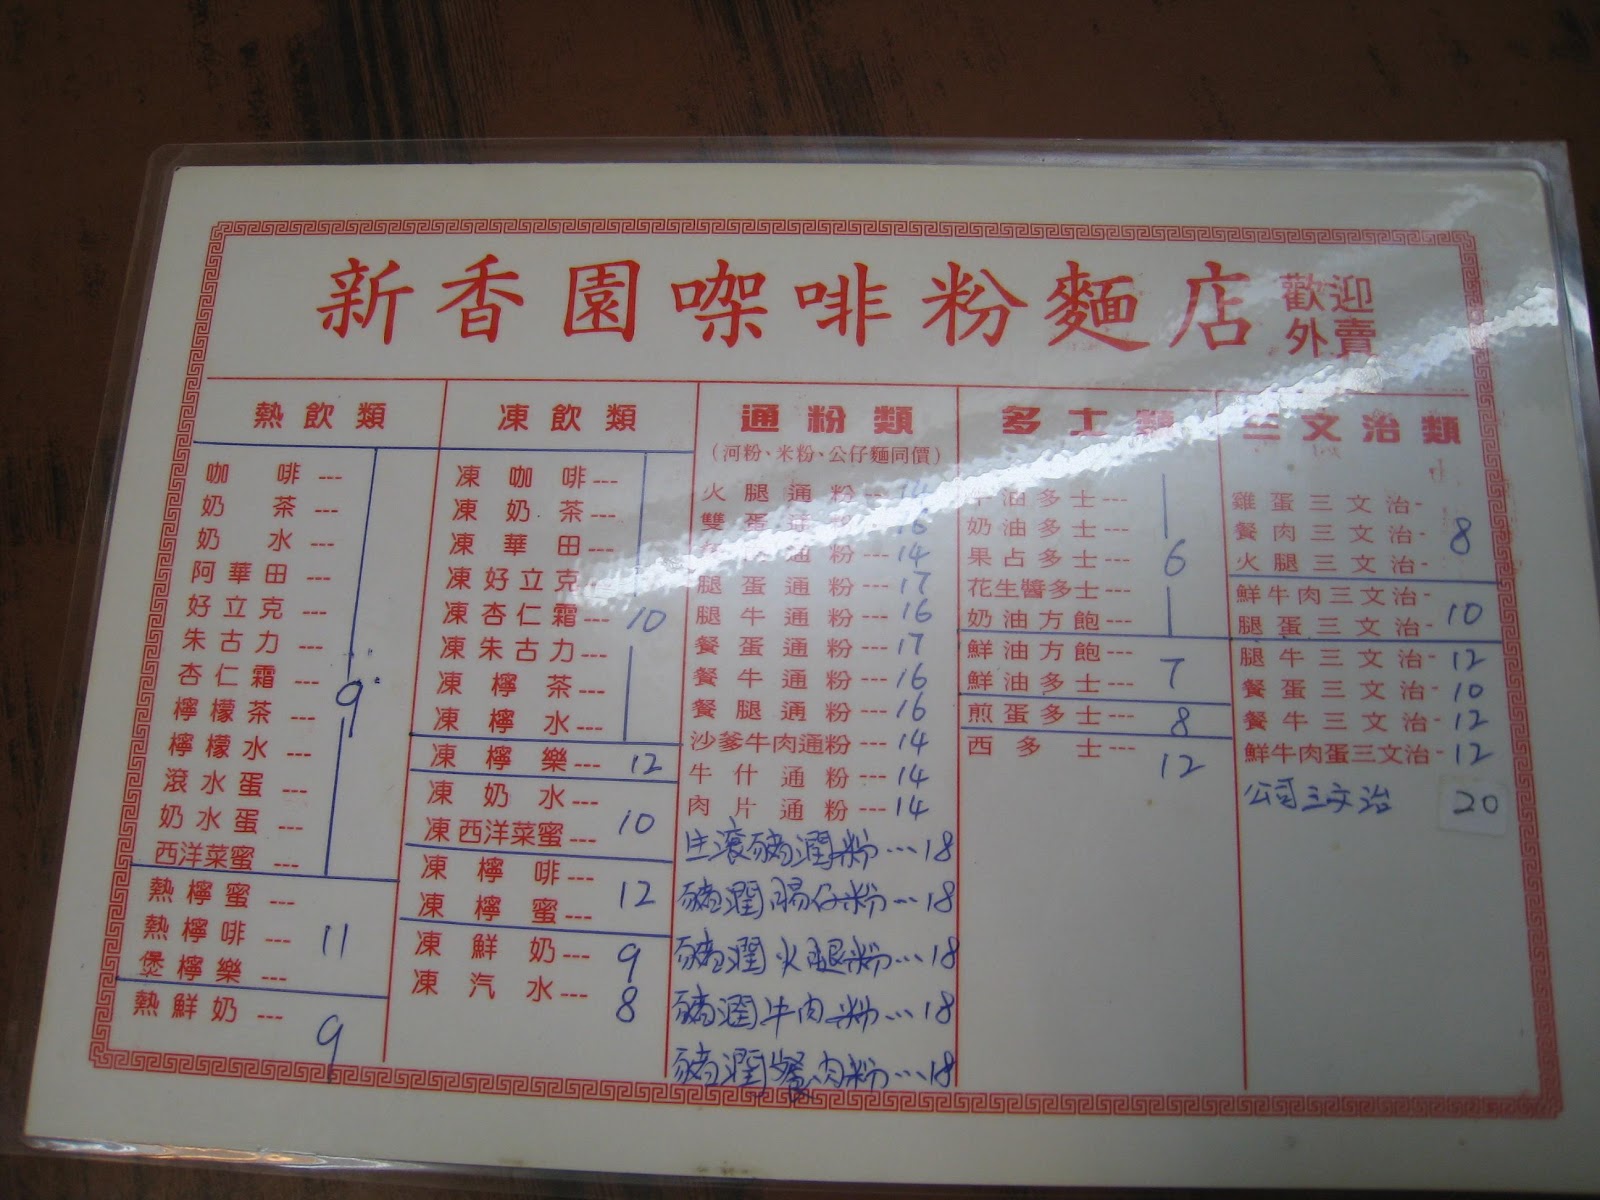 新香園㗎啡粉麵店
歡迎
外賣
熱飲類
咖啡---
奶茶---
奶水---
阿華田---
好立克---
朱古力---
杏仁霜---
檸檬茶---
檸檬水---
滾水蛋---
奶水蛋---
西洋菜蜜---
9
熱檸蜜---
熱檸啡---
煲檸樂---
11
熱鮮奶---
9
凍飲類
凍咖啡---
凍奶茶---
凍華田
凍好立克
凍杏仁霜---
凍朱古力---
凍檸茶---
凍檸水---
10
凍檸樂--- 12
凍奶水---
凍西洋菜蜜---
10
凍檸啡---
凍檸蜜---
12
凍鮮奶--- 9
凍汽水--- 8
通粉類
(河粉、米粉、公仔麵同價)
火腿通粉--- 14
雙蛋 16
通粉--- 14
腿蛋通粉--- 17
腿牛通粉--- 16
餐蛋通粉--- 17
餐牛通粉--- 16
餐腿通粉--- 16
沙爹牛肉通粉--- 14
牛什通粉--- 14
肉片通粉--- 14
生滾豬潤粉...18
豬潤腸仔粉...18
豬潤火腿粉...18
豬潤牛肉粉...18
豬潤餐肉粉...18
多士類
牛油多士---
奶油多士---
果占多士---
花生醬多士---
奶油方飽---
6
鮮油方飽---
鮮油多士---
7
煎蛋多士--- 8
西多士--- 12
三文治類
雞蛋三文治-
餐肉三文治-
火腿三文治-
8
鮮牛肉三文治-
腿蛋三文治-
10
腿牛三文治- 12
餐蛋三文治- 10
餐牛三文治- 12
鮮牛肉蛋三文治- 12
公司三文治 20